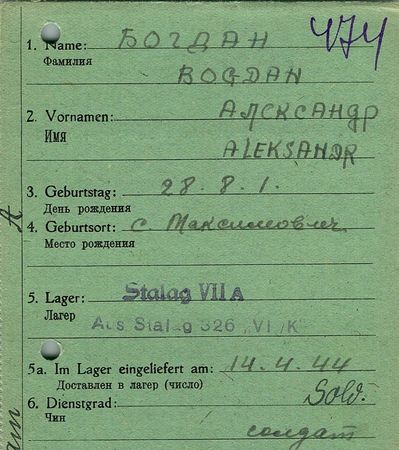 474
1. Name: БОГДАН
Фамилия
BOGDAN
2. Vornamen: АЛЕКСАНДР
Имя
ALEKSANDR
3. Geburtstag: 28. 8. 1.
День рождения
4. Geburtsort: с Максимович
Место рождения
5. Lager: Stalag VII A
Лагер
Aus Stalag 326 „VI/K“
5a. Im Lager eingeliefert am: 14. 4. 44
Доставлен в лагер (число)
6. Dienstgrad: Sold.
Чин
солдат